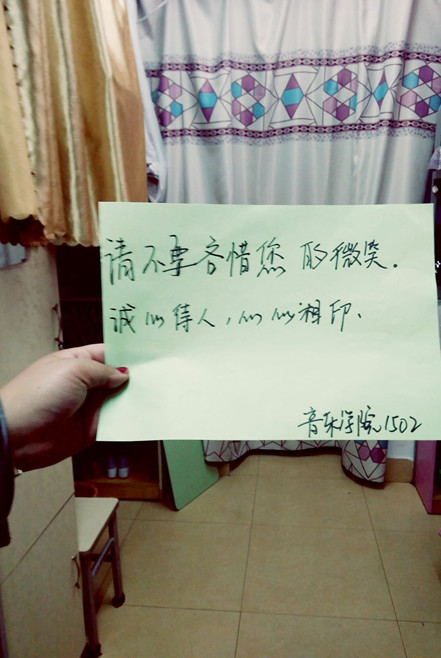 请不要吝惜您的微笑.
诚心待人,心心相印.
音乐学院1502